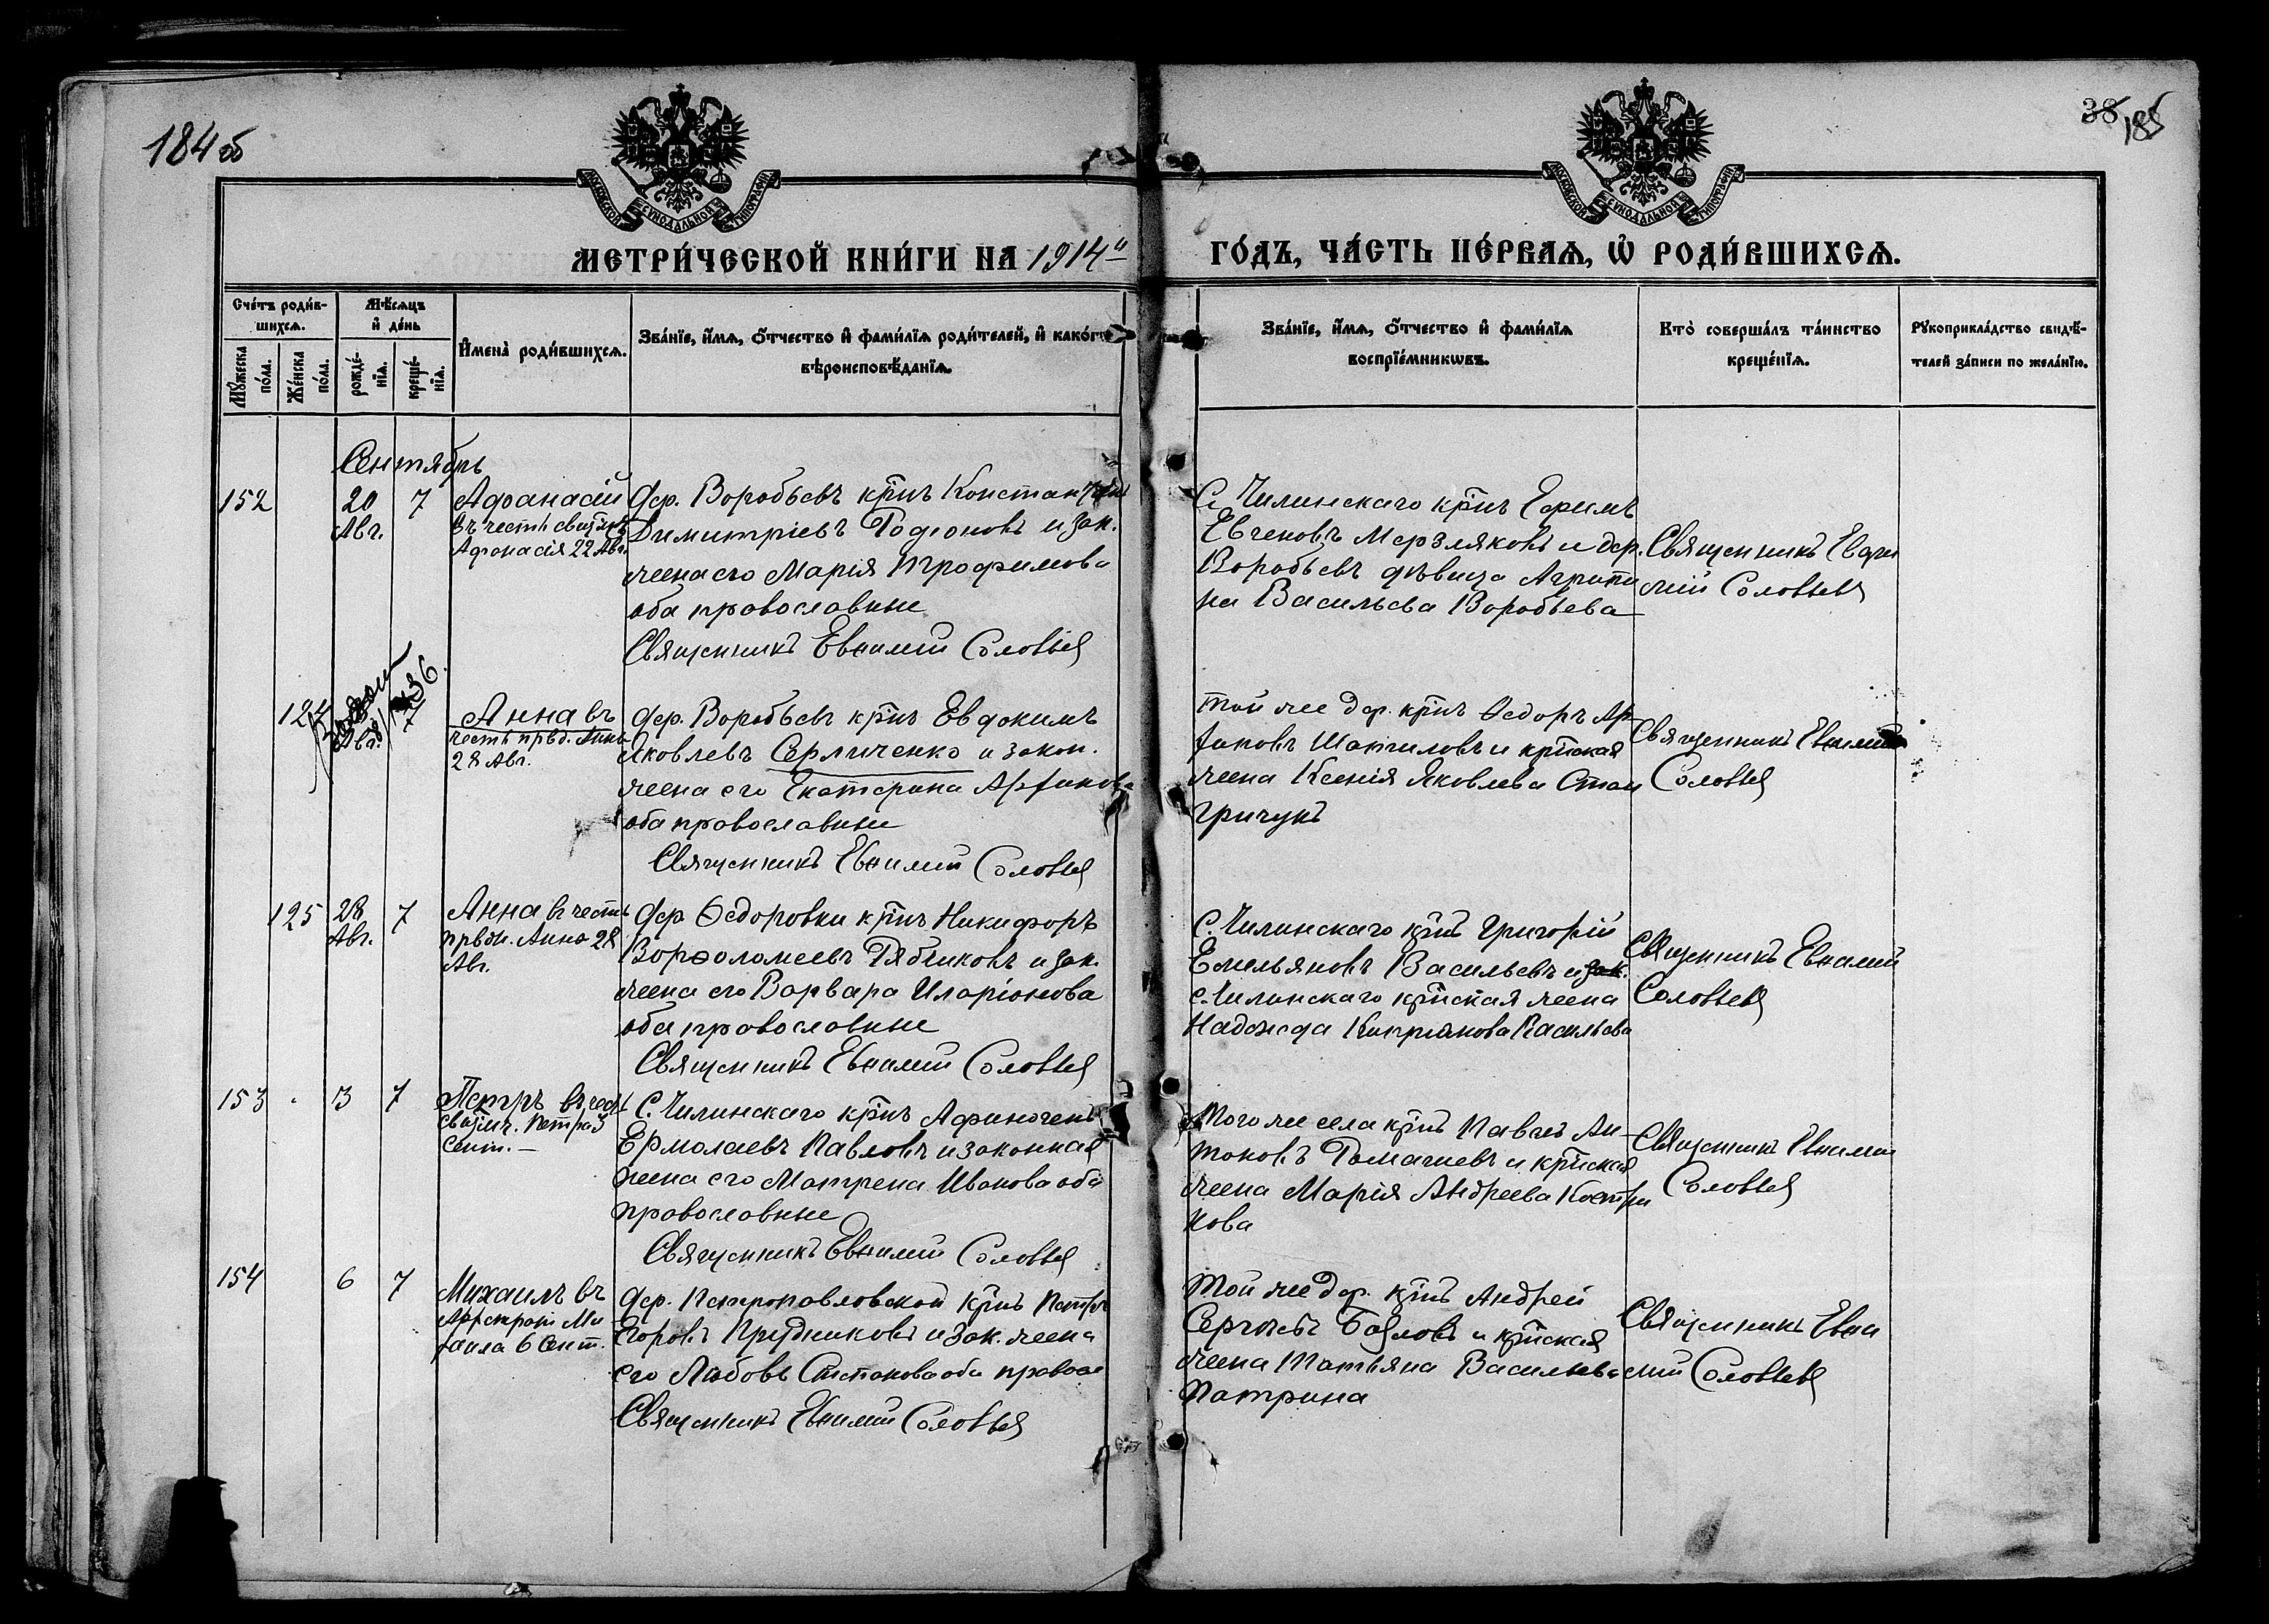 184 об
38 185
МОСКОВСКОЙ СУНОДАЛЬНОЙ ТИПОГРАФІИ
МОСКОВСКОЙ СУНОДАЛЬНОЙ ТИПОГРАФІИ
МЕТРИ́ЧЕСКОЙ КНИ́ГИ НА 1914й ГО́ДЪ, ЧА́СТЬ ПЕ́РВАѦ, Ѡ РОДИ́ВШИХСѦ.
Сче́тъ роди́в-
шихсѧ.
Мѣ́сяцъ
и҆ де́нь
Мꙋ́жеска
по́ла.
Же́нска
по́ла.
рожде́-
нїѧ.
креще́-
нїѧ.
И҆мена̀ роди́вшихсѧ.
Зва́нїе, и҆́мѧ, ѻ҆́тчество и҆ фами́лїѧ роди́телей, и҆ како́гѡ
вѣроисповѣ́данїѧ.
Зва́нїе, и҆́мѧ, ѻ҆́тчество и҆ фами́лїѧ
воспрїе́мникѡвъ.
Кто̀ соверша́лъ та́инство
креще́нїѧ.
Рꙋкоприкла́дство свидѣ́-
телей за́писи по жела́нїю.
Сентябрь
152 20 7
Авг.
Афанасій
въ честь
Афанасія 22 Авг.
Дер. Воробьевъ крнъ Константинъ
Димитріевъ Родіоновъ и зак.
жена его Марія Трофимова
оба православные
Священникъ Евфимій Соловьевъ
С. Чилинскаго крнъ Ефимъ
Мерзляковъ и дер.
Воробьевъ дѣвица Агрипи
на Васильева Воробьева
Священникъ Евфи
мій Соловьевъ
124 7
Авг.
Анна въ
честь првд. Анны
28 Авг.
Дер. Воробьевъ крнъ Евдокимъ
Яковлевъ Серличенко и закон.
жена его Екатерина
оба православные
Священникъ Евфимій Соловьевъ
Той же дер. крнъ Ѳедоръ Ар
Шапиловъ и крнская
жена Ксенія Яковлева
Священникъ Евфимій
Соловьевъ
125 28 7
Авг.
Анна въ честь
првдн. Анны 28
Авг.
Дер Ѳедоровки крнъ Никифоръ
Варѳоломеевъ Рябчиковъ и зак.
жена его Варвара Иларіонова
оба православные
Священникъ Евфимій Соловьевъ
С. Чилинскаго крнъ Григорій
Емельяновъ Васильевъ и зак.
с. Чилинскаго крнская жена
Надежда Кипріянова Васильева
Священникъ Евфимій
Соловьевъ
153 3 7
Петръ въ честь
Петра 3
Сент. —
С. Чилинскаго крнъ Афиногенъ
Ермолаевъ Павловъ и законная
жена его Матрена Иванова оба
православные
Священникъ Евфимій Соловьевъ
Того же села крнъ Павелъ Ан
тоновъ и крнская
жена Марія Андреева Костри
кова
Священникъ Евфимій
Соловьевъ
154 6 7
Михаилъ въ
Архстрат Ми
хаила 6 Сент.
Дер. Петропавловской крнъ Петръ
Егоровъ Прудниковъ и зак. жена
его Любовь Степанова оба правосл
Священникъ Евфимій Соловьевъ
Той же дер. крнъ Андрей
Сергѣевъ и крнская
жена Татьяна Васильева
Патрина
Священникъ Евфи
мій Соловьевъ